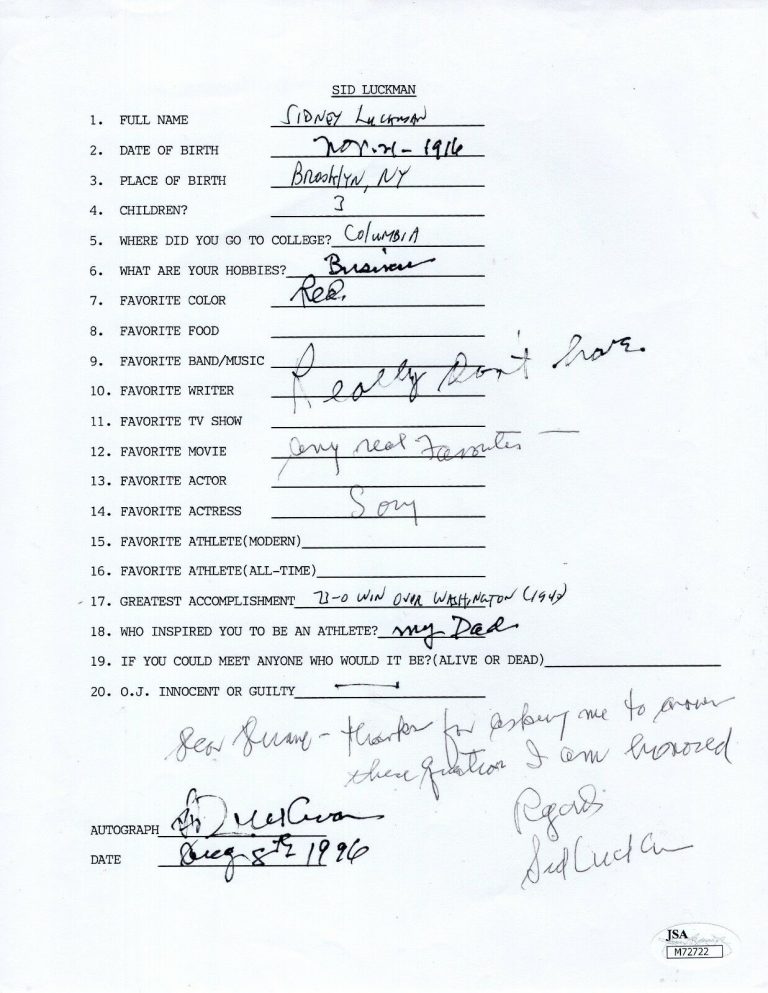 SID LUCKMAN
1. FULL NAME Sidney Luckman
2. DATE OF BIRTH Nov. 21 - 1916
3. PLACE OF BIRTH Brooklyn, NY
4. CHILDREN? 3
5. WHERE DID YOU GO TO COLLEGE? Columbia
6. WHAT ARE YOUR HOBBIES? Business
7. FAVORITE COLOR Red.
8. FAVORITE FOOD
9. FAVORITE BAND/MUSIC Really don't have
10. FAVORITE WRITER
11. FAVORITE TV SHOW
12. FAVORITE MOVIE any real favorites —
13. FAVORITE ACTOR
14. FAVORITE ACTRESS Sorry
15. FAVORITE ATHLETE(MODERN)
16. FAVORITE ATHLETE(ALL-TIME)
17. GREATEST ACCOMPLISHMENT 73-0 WIN OVER WASHINGTON (1940)
18. WHO INSPIRED YOU TO BE AN ATHLETE? My Dad
19. IF YOU COULD MEET ANYONE WHO WOULD IT BE?(ALIVE OR DEAD)
20. O.J. INNOCENT OR GUILTY —
Dear - thanks for asking me to answer
these question I am honored
Regards
Sid Luckman
AUTOGRAPH Sid Luckman
DATE Aug 8th 1996
JSA
M72722